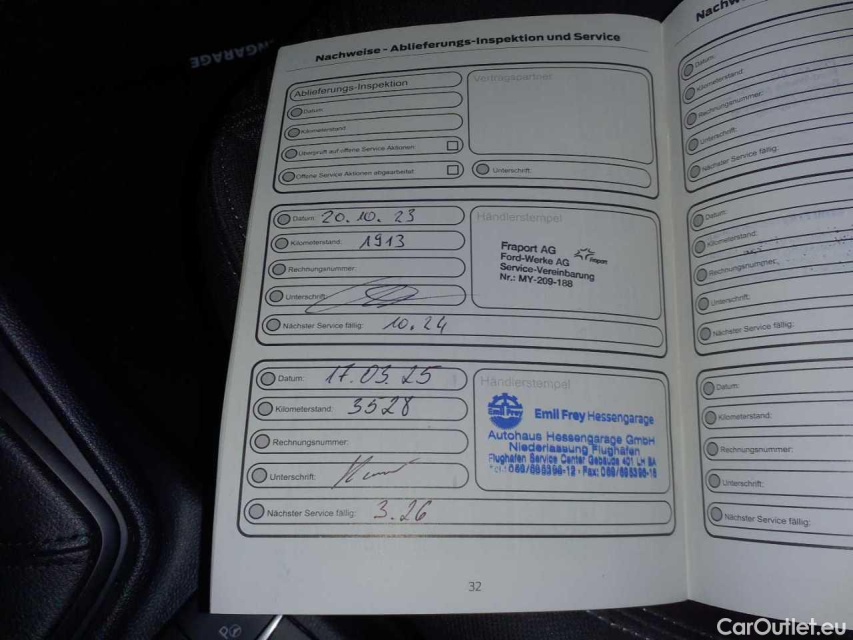 NGARAGE
Nachweise - Ablieferungs-Inspektion und Service
Ablieferungs-Inspektion
Datum:
Kilometerstand:
Überprüft auf offene Service Aktionen:
Offene Service Aktionen abgearbeitet:
Vertragspartner
Unterschrift:
Datum: 20.10.23
Kilometerstand: 1913
Rechnungsnummer:
Unterschrift:
Nächster Service fällig: 10.24
Händlerstempel
Fraport AG
Fraport
Ford-Werke AG
Service-Vereinbarung
Nr.: MY-209-188
Datum: 17.03.25
Kilometerstand: 3528
Rechnungsnummer:
Unterschrift:
Nächster Service fällig: 3.26
Händlerstempel
Emil Frey
Emil Frey Hessengarage
Autohaus Hessengarage GmbH
Niederlassung Flughafen
Flughafen Service Center Gebäude 401 LH BA
32
Nachw
Datum:
Kilometerstand:
Rechnungsnummer:
Unterschrift:
Nächster Service fällig:
Datum:
Kilometerstand:
Rechnungsnummer:
Unterschrift:
Nächster Service fällig:
Datum:
Kilometerstand:
Rechnungsnummer:
Unterschrift:
Nächster Service fällig:
CarOutlet.eu